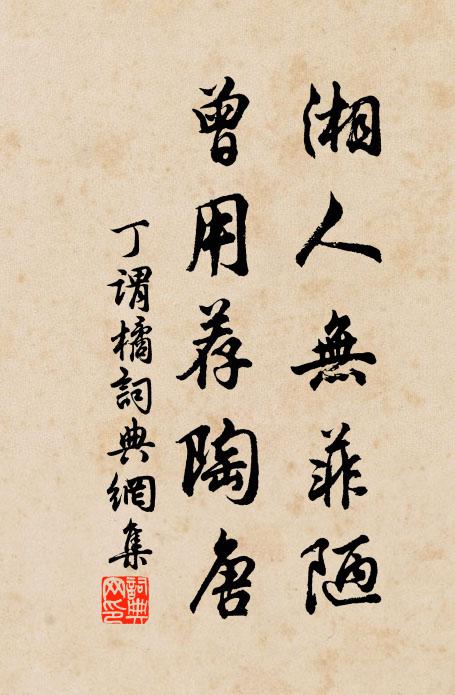 湘人無菲陋
曾用荐陶唐
丁謂橘詞典網集
詞典网印